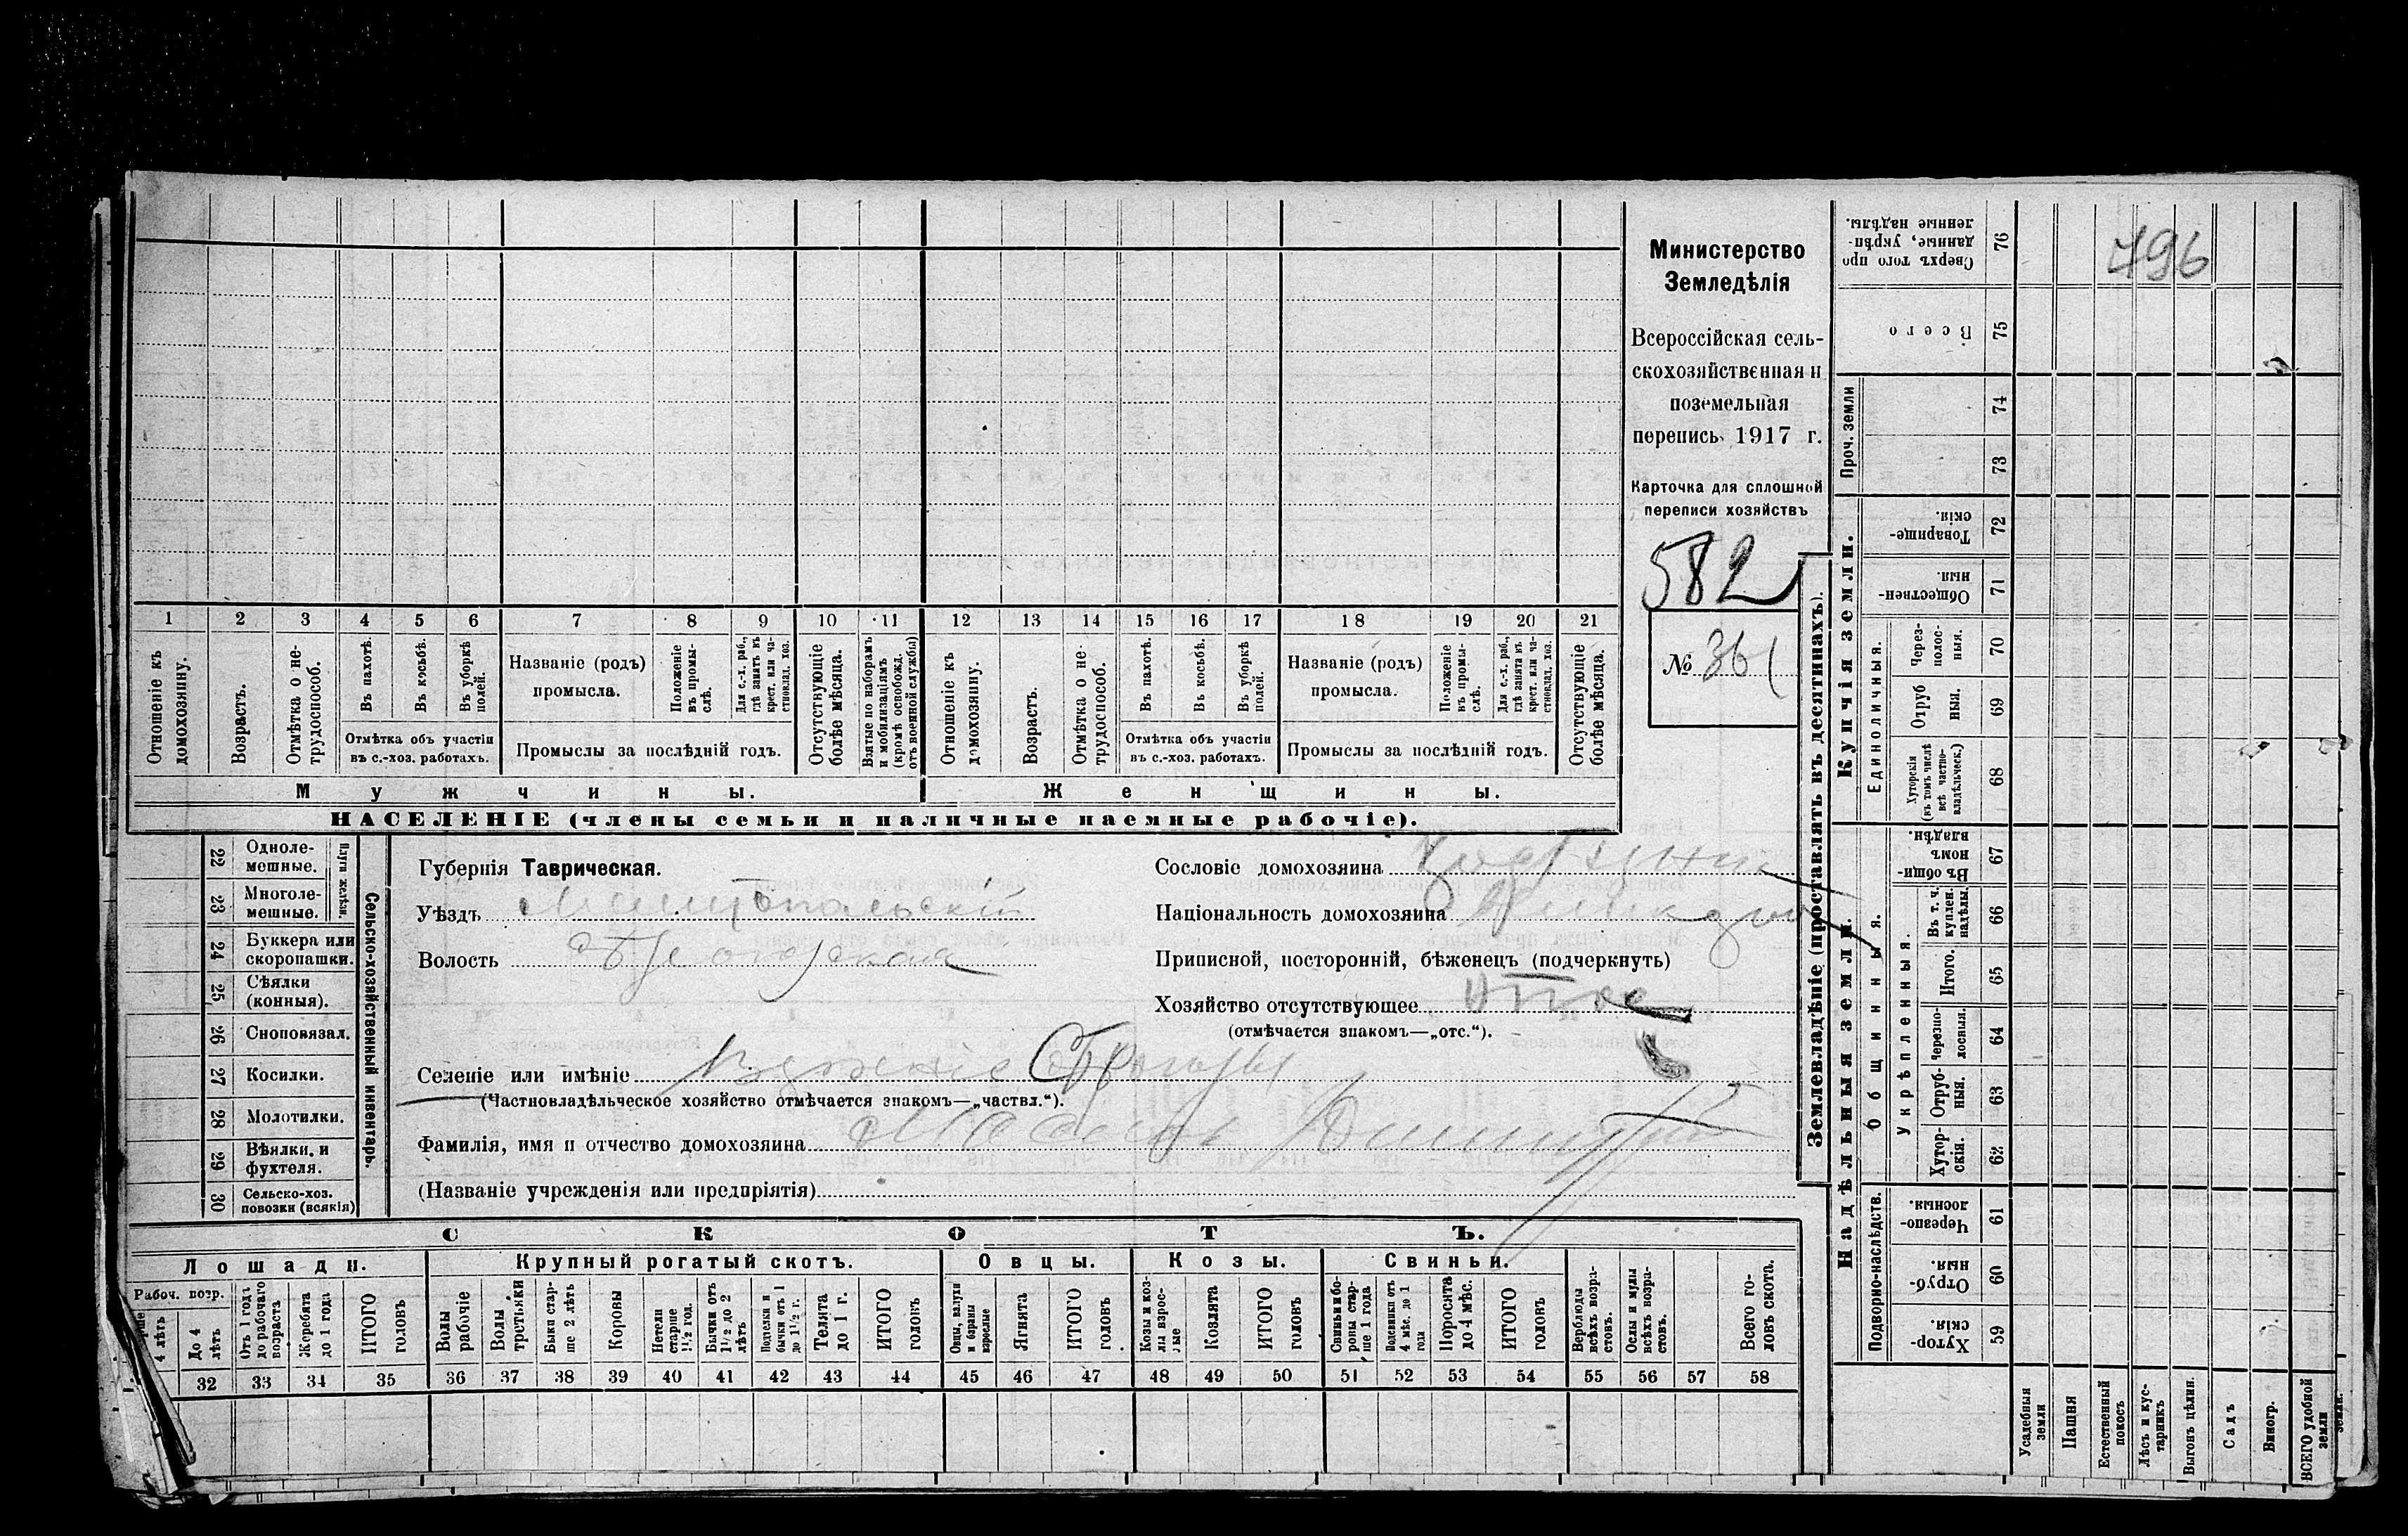 Министерство
Земледѣлія
Всероссійская сель-
скохозяйственная и
поземельная
перепись 1917 г.
Карточка для сплошной
переписи хозяйствъ
582
№ 361
796
1 2 3 4 5 6 7 8 9 10 11 12 13 14 15 16 17 18 19 20 21
Отношеніе къ домохозяину.
Возрастъ.
Отмѣтка о не-трудоспособ.
Въ пахотѣ.
Въ косьбѣ.
Въ уборкѣ полей.
Отмѣтка объ участіи
въ с.-хоз. работахъ.
Названіе (родъ)
промысла.
Положеніе въ промы-слѣ.
Для с.-х. раб., гдѣ занятъ въ крест. или ча-стновлад. хоз.
Промыслы за послѣдній годъ.
Отсутствующіе болѣе мѣсяца.
Взятые по наборамъ и мобилизаціямъ (кромѣ освобожд. отъ военной службы)
Отношеніе къ домохозяину.
Возрастъ.
Отмѣтка о не-трудоспособ.
Въ пахотѣ.
Въ косьбѣ.
Въ уборкѣ полей.
Отмѣтка объ участіи
въ с.-хоз. работахъ.
Названіе (родъ)
промысла.
Положеніе въ промы-слѣ.
Для с.-х. раб., гдѣ занята въ крест. или ча-стновлад. хоз.
Промыслы за послѣдній годъ.
Отсутствующіе болѣе мѣсяца.
Мужчины.
Женщины.
НАСЕЛЕНІЕ (члены семьи и наличные наемные рабочіе).
Сельско-хозяйственный инвентарь.
Плуги желѣзн.
22 Однолемешные.
23 Многолемешные.
24 Буккера или скоропашки.
25 Сѣялки (конныя).
26 Сноповязал.
27 Косилки.
28 Молотилки.
29 Вѣялки и фухтеля.
30 Сельско-хоз. повозки (всякія)
Губернія Таврическая.
Уѣздъ Мелитопольскій
Волость
Селеніе или имѣніе
(Частновладѣльческое хозяйство отмѣчается знакомъ—„частвл.“).
Фамилія, имя и отчество домохозяина
(Названіе учрежденія или предпріятія)
Сословіе домохозяина
Національность домохозяина
Приписной, посторонній, бѣженецъ (подчеркнуть)
Хозяйство отсутствующее
(отмѣчается знакомъ—„отс.“).
СКОТЪ.
Лошади.
Крупный рогатый скотъ.
Овцы.
Козы.
Свиньи.
Рабоч. возр.
4 лѣтъ
До 4 лѣтъ
Отъ 1 годъ до рабочаго возраста
Жеребята до 1 года
ИТОГО головъ
Волы рабочіе
Волы третьяки
Быки стар-ше 2 лѣтъ
Коровы
Нетели старше 1½ год.
Бычки отъ 1½ до 2 лѣтъ
Подтелки и бычки отъ 1 до 1½ г.
Телята до 1 г.
ИТОГО головъ
Овцы, валухи и бараны взрослые
Ягнята
ИТОГО головъ
Козы и коз-лы взрос-лые
Козлята
ИТОГО головъ
Свиньи и бо-ровы стар-ше 1 года
Подсвинки отъ 4 мѣс. до 1 года
Поросята до 4 мѣс.
ИТОГО головъ
Верблюды всѣхъ возра-стовъ.
Ослы и мулы всѣхъ возра-стовъ.
Всего го-ловъ скота.
32 33 34 35 36 37 38 39 40 41 42 43 44 45 46 47 48 49 50 51 52 53 54 55 56 57 58
Землевладѣніе (проставлять въ десятинахъ).
Надѣльныя земли.
Купчія земли.
Проч. земли
Подворно-наслѣдств.
Общинныя.
Укрѣпленныя.
Единоличныя.
Сверхъ того про данные, укрѣп-ленные надѣлы. 76
Всего 75
74
73
Товарище-скія. 72
Обществен-ныя. 71
Через-полос-ныя. 70
Отруб ныя. 69
Хуторскія (въ томъ числѣ всѣ частно-владѣльческ.) 68
Въ общи-номъ владѣн. 67
Въ т. ч. куплен. надѣлы. 66
Итого. 65
Черезпо-лосныя. 64
Отруб-ныя. 63
Хутор-скія. 62
Черезпо-лосныя. 61
Отруб-ныя. 60
Хутор-скія. 59
Усадебныя земли
Пашня
Естественный покосъ
Лѣсъ и кус-тарникъ
Выгонъ цѣлин.
Садъ
Виногр.
ВСЕГО удобной земли